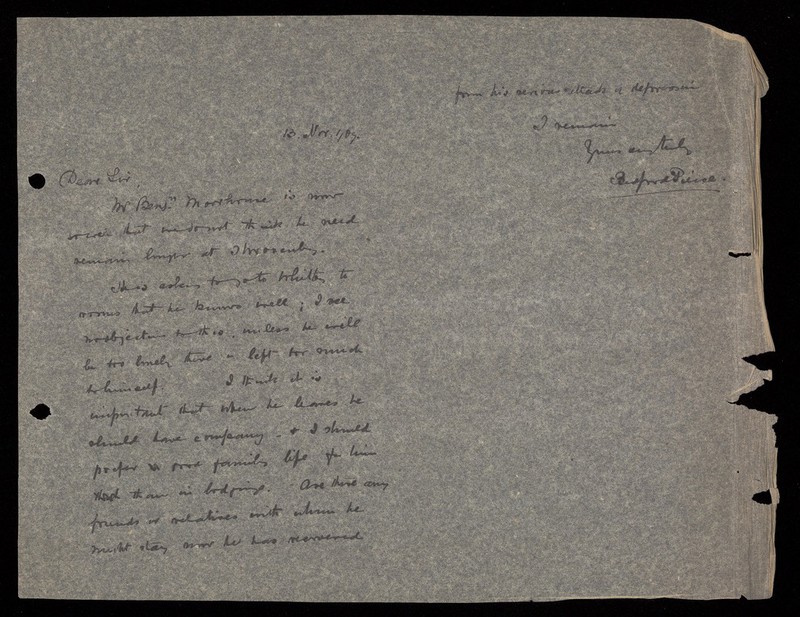 13 Nov. 1/07.
Dear Sir,
Mr Benjn Moorhouse is now
so well that we do not think he need
remain longer at
He is asking to go to Whitby to
rooms that he knows well; I see
no objection to this, unless he will
be too lonely there & left too much
to himself. I think it is
important that when he leaves he
should have company - & I should
prefer a good family life for him
than in lodgings. Are there any
friends or relatives with whom he
might stay now he has recovered
from his serious attack of depression
I remain
Yours very truly
Bedford Pierce.